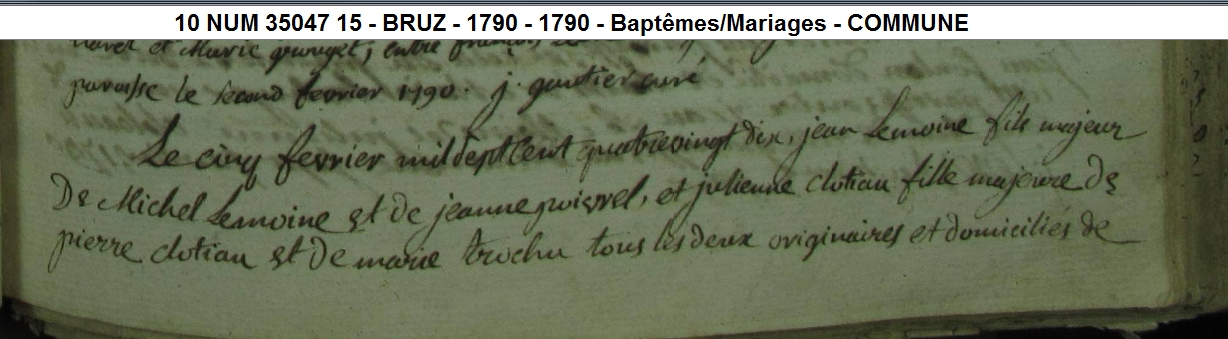 10 NUM 35047 15 - BRUZ - 1790 - 1790 - Baptêmes/Mariages - COMMUNE
et Marie gwaget; entre
paroisse le second fevrier 1790. j. gautier curé
Le cinq fevrier mil sept cent quatrevingt dix, jean Lemoine fils majeur
De Michel Lemoine et de jeanne poisnel, et julienne clotiau fille majeure de
pierre clotiau et De marie trochu tous les deux originaires et domiciliés de